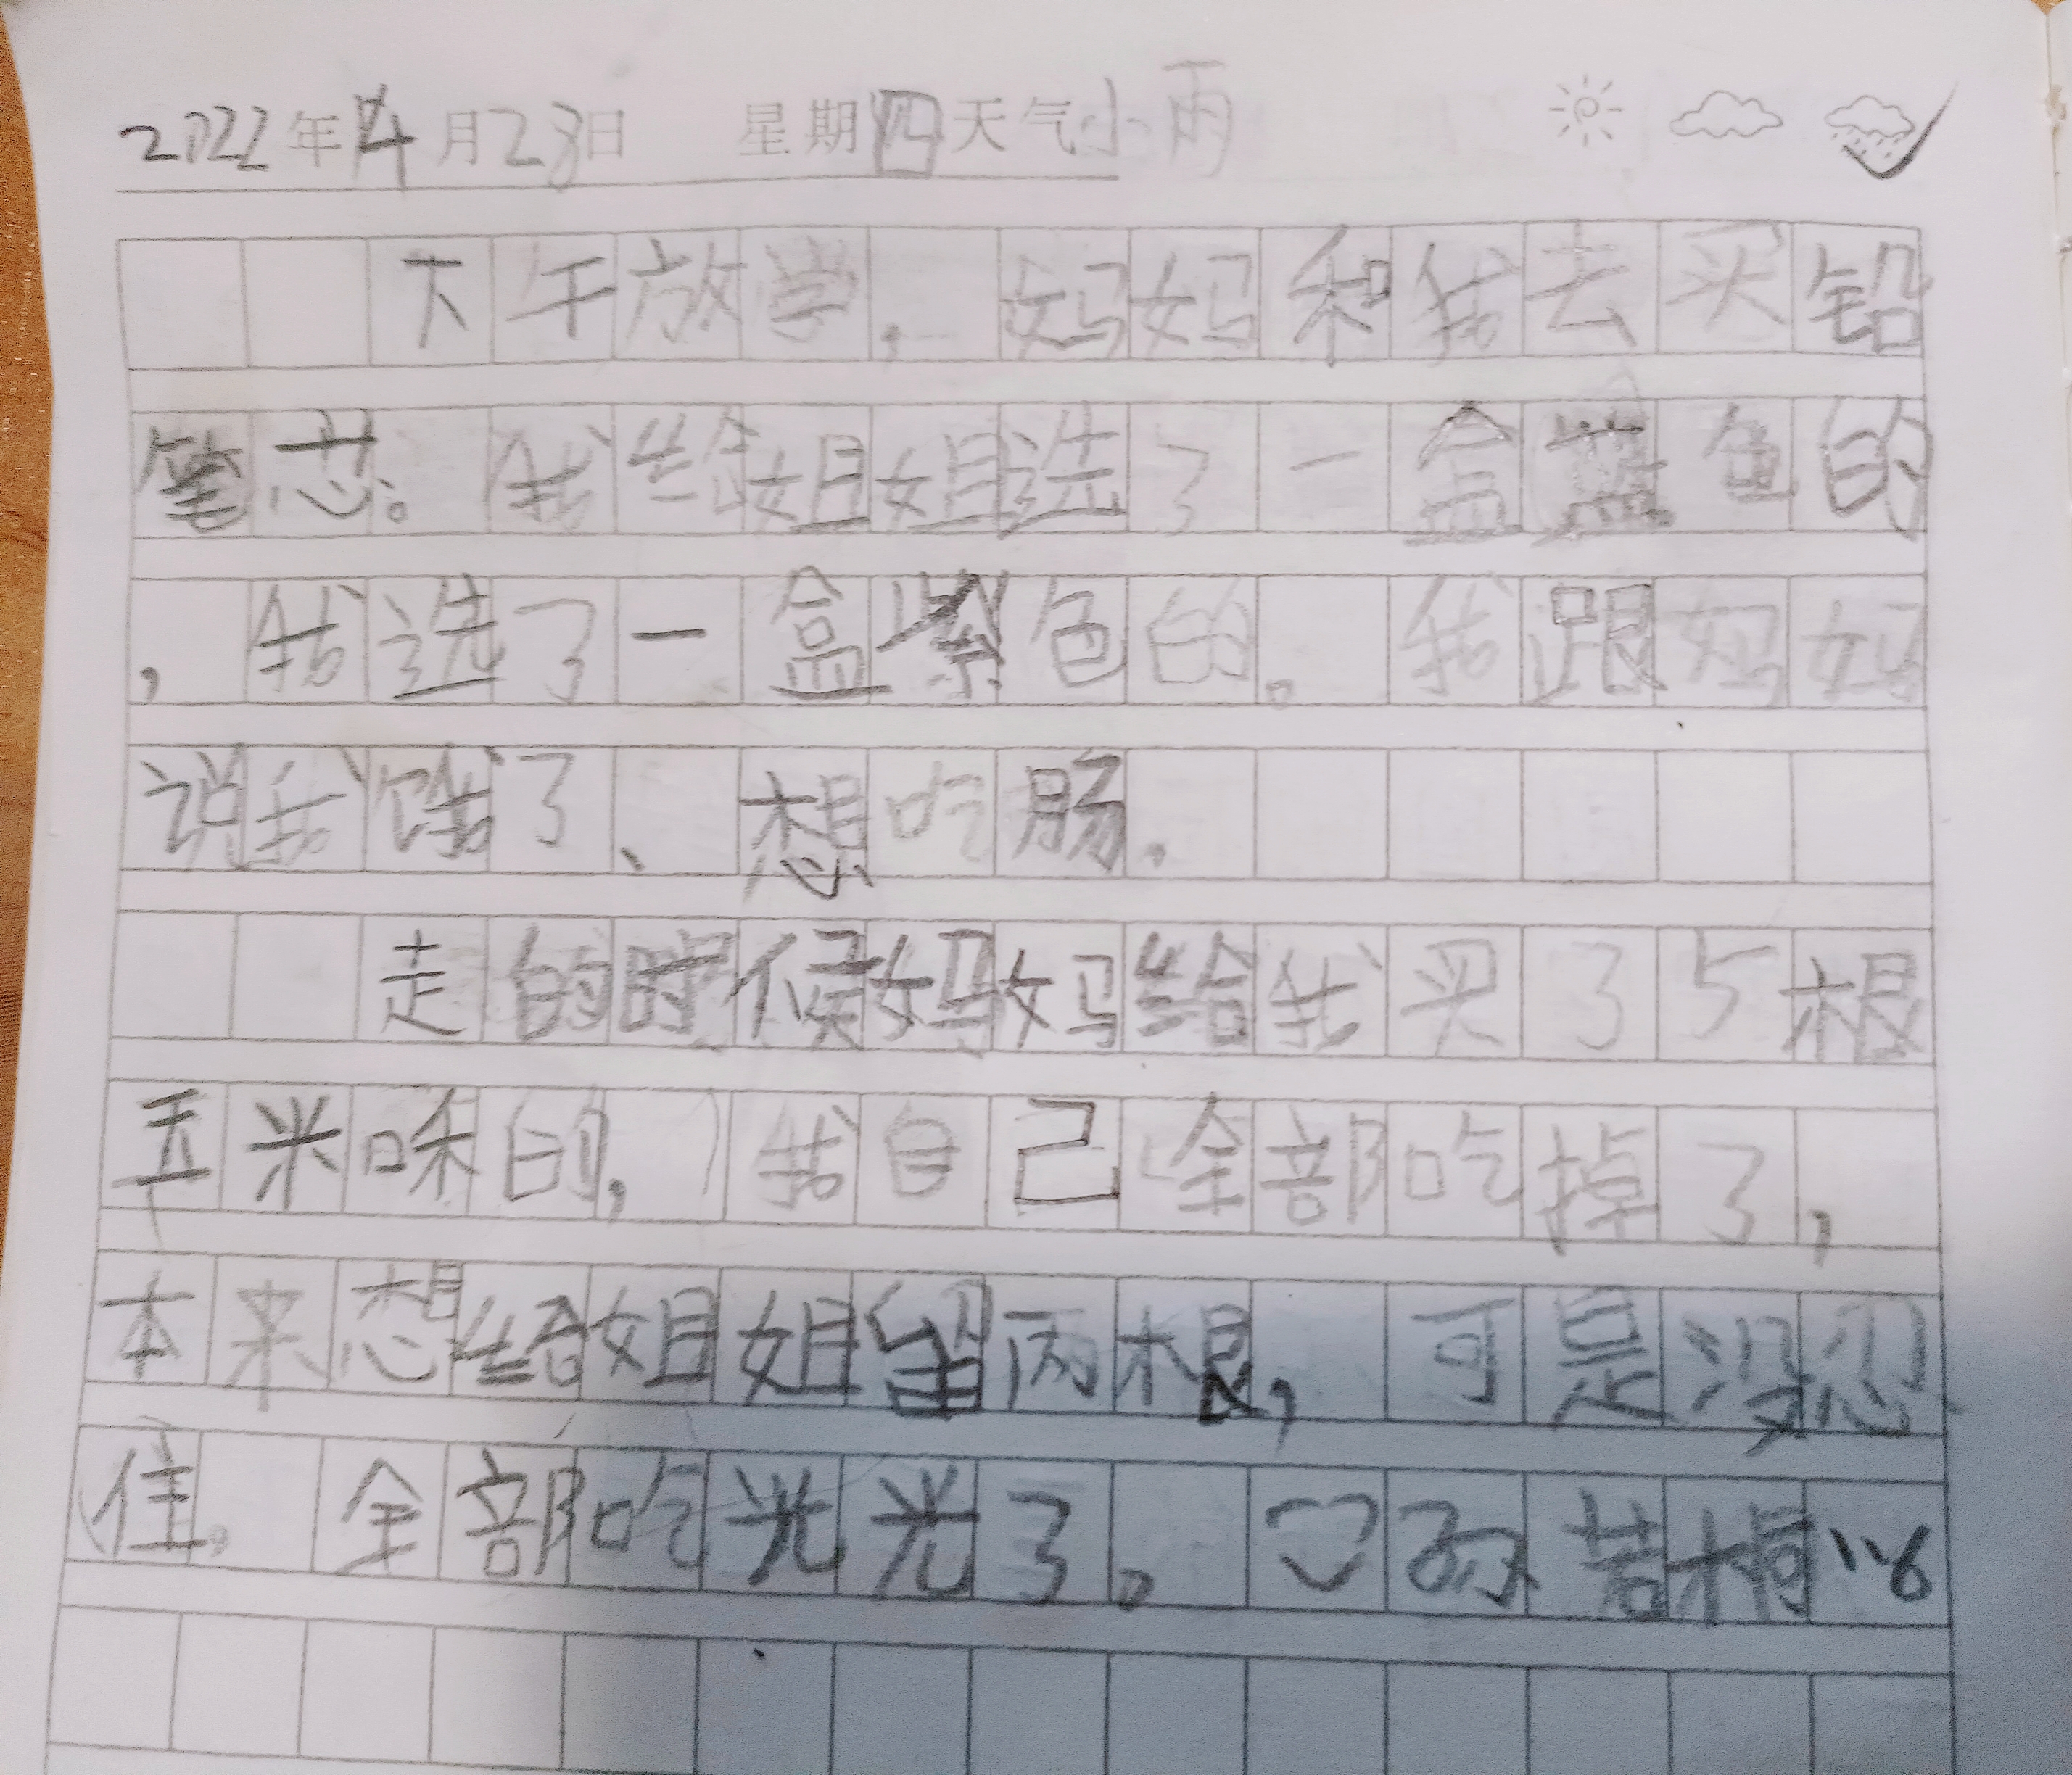 2022年4月28日 星期四天气小雨
下午放学，妈妈和我去买铅
笔芯。我给姐姐选了一盒蓝色的
，我选了一盒紫色的。我跟妈妈
说我饿了、想吃肠。
走的时候妈妈给我买了5根
玉米味的，我自己全部吃掉了，
本来想给姐姐留两根，可是没忍
住。全部吃光光了。